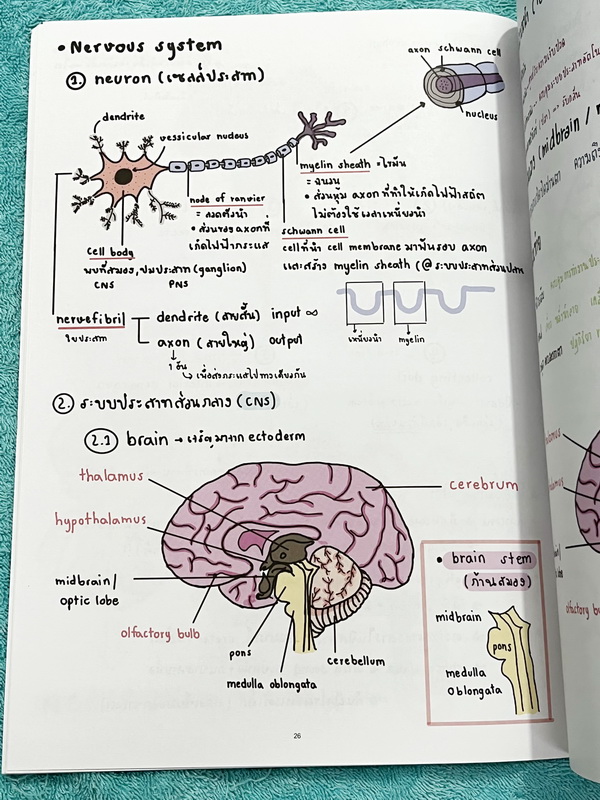 • Nervous system
1. neuron (เซลล์ประสาท)
axon schwann cell
nucleus
dendrite
vessicular nucleus
myelin sheath • ไขมัน
= ฉนวน
• ส่วนหุ้ม axon ที่ทำให้เกิดไฟฟ้าสถิต
ไม่ต้องใช้ เหนี่ยวนำ
node of ranvier
= ลวดตัวนำ
• ส่วนของ axon ที่
เกิดไฟฟ้ากระแส
schwann cell
cell ที่นำ cell membrane มาพันรอบ axon
และสร้าง myelin sheath (@ ระบบประสาทส่วนปลาย
cell body
พบที่สมอง, ปมประสาท (ganglion)
CNS PNS
nervefibril
ใยประสาท
dendrite (สายสั้น) input ∞
axon (สายใหญ่) output
1 อัน
เพื่อส่งกระแสไปทางเดียวกัน
เหนี่ยวนำ myelin
2. ระบบประสาทส่วนกลาง (CNS)
2.1 brain → เจริญมาจาก ectoderm
thalamus
cerebrum
hypothalamus
midbrain/
optic lobe
olfactory bulb
pons
medulla oblongata
cerebellum
• brain stem
(ก้านสมอง)
midbrain
pons
medulla
oblongata
26
(midbrain /
olfactory bu